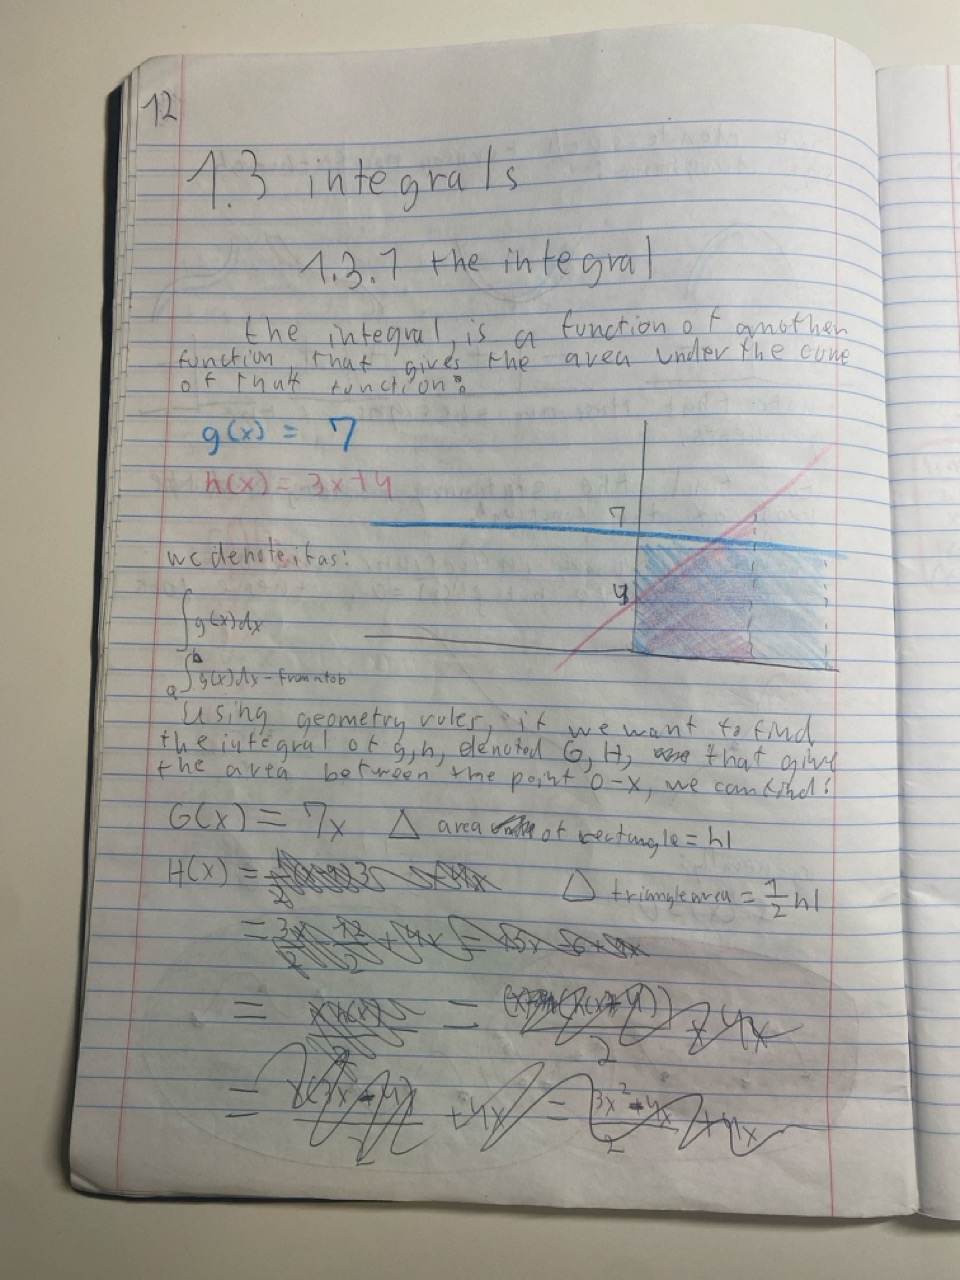 12
1.3 integrals
1.3.1 the integral
the integral, is a function of another
function, that gives the area under the curve
of that function:
g(x) = 7
h(x) = 3x+4
7
we denote it as:
4
∫g(x)dx
a∫b g(x)dx - from a to b
Using geometry rules, if we want to find
the integral of g,h, denoted G, H, that give
the area between the point 0-x, we can find:
G(x) = 7x △ area of rectangle = hl
H(x) = △ triangle area = 1/2 hl
=
= =
= =